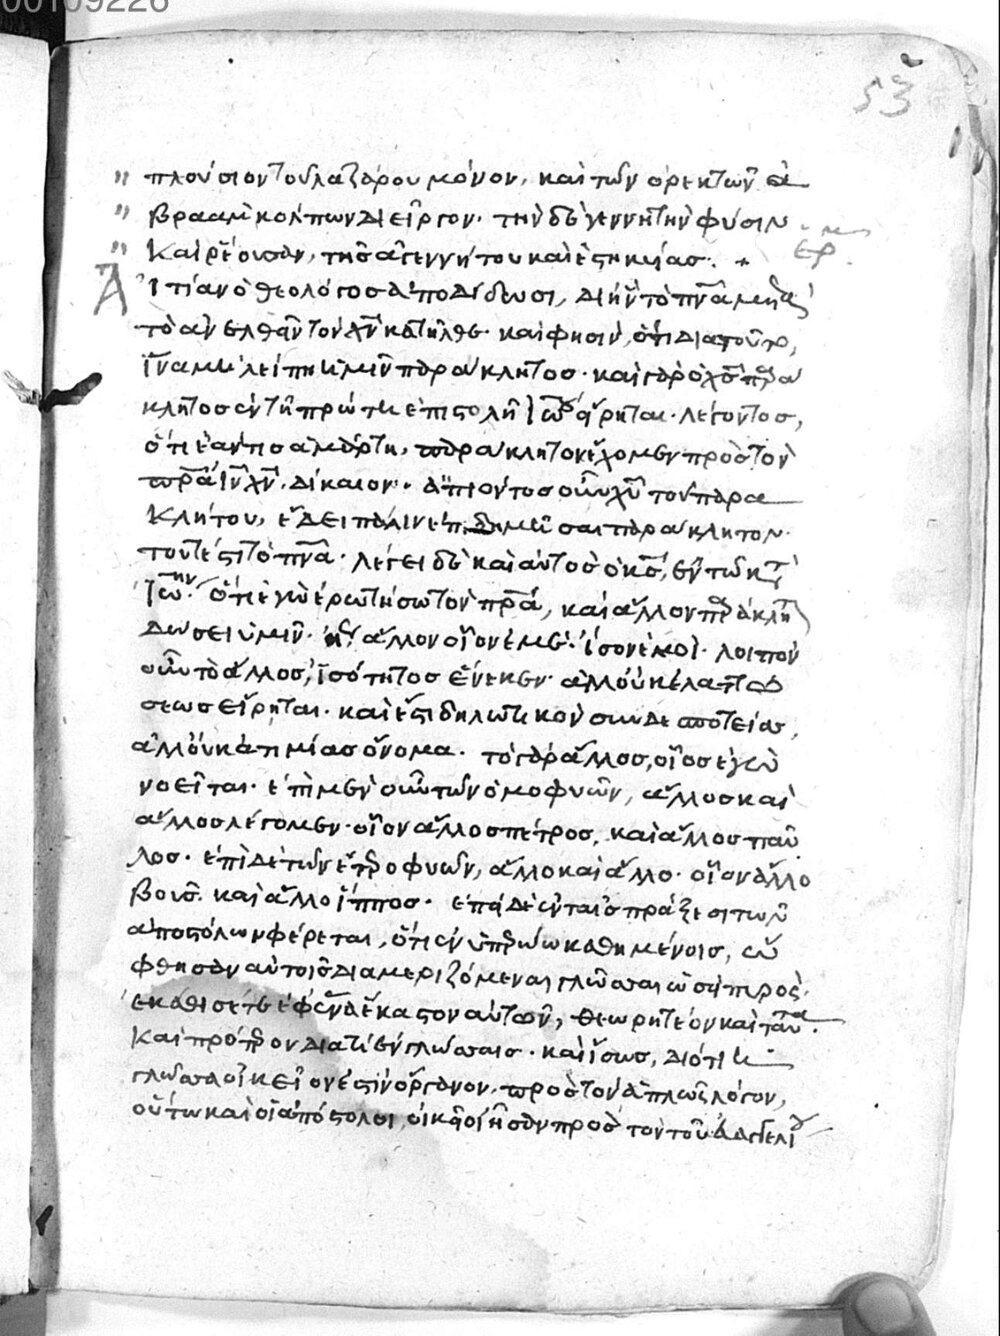 00109226
53
" πλούσιον τοῦ λαζάρου μόνον, καὶ τῶν ὀρεκτῶν ἀ
" βρααμ κόλπων διεῖργον· τὴν δὲ γεννητὴν φύσιν
" Καὶ ῥέουσαν, τῆς ἀγεννήτου καὶ ἑστηκυίας.
Αἰτίαν ὁ θεολόγος ἀποδίδωσι, δι' ἣν τὸ πνα μετὰ
τὸ ἀνελθεῖν τὸν χν κατῆλθε· καὶ φησὶν, ὅτι διὰ τοῦτο,
ἵνα μὴ λείπῃ ἡμῖν παράκλητος· καὶ γὰρ ὁ χς παρά
κλητος ἐν τῇ πρώτῃ ἐπιστολῇ Ἰω εἴρηται· λέγοντος,
ὅτι ἐάν τις ἁμάρτῃ, παράκλητον ἔχομεν πρὸς τὸν
πρα ιν χν δίκαιον· ἀπιόντος οὖν χυ τοῦ παρα
Κλήτου, ἔδει πάλιν ἐπιδημῆσαι παράκλητον·
τουτέστι τὸ πνα· λέγει δὲ καὶ αὐτὸς ὁ κς, ἐν τῷ κτ
Ἰωην· ὅτι ἐγὼ ἐρωτήσω τὸν πρα, καὶ ἄλλον παράκλητ
δώσει ὑμῖν· ἄλλον οἷον ἐμέ· ἴσον ἐμοί· λοιπὸν
οὖν τὸ ἄλλος, ἰσότητος ἕνεκεν· ἀλλ' οὐκ ἐλαττώ
σεως εἴρηται· καὶ ἔστι δηλωτικὸν συνδεσποτείας,
ἀλλ' οὐκ ἀτιμίας ὄνομα· τὸ γὰρ ἄλλος, οἷος ἐγὼ
νοεῖται· ἐπὶ μὲν οὖν τῶν ὁμοφυῶν, ἄλλος καὶ
ἄλλος λέγομεν· οἷον ἄλλος πέτρος, καὶ ἄλλος παῦ
λος· ἐπὶ δὲ τῶν ἑτεροφυῶν, ἄλλο καὶ ἄλλο· οἷον ἄλλο
βοῦς· καὶ ἄλλο ἵππος· ἐπεὶ δὲ ἐν ταῖς πράξεσι τῶν
ἀποστόλων φέρεται, ὅτι ἐν ὑπερώω καθημένοις, ὤ
φθησαν αὐτοῖς διαμεριζόμεναι γλῶσσαι ὡσεὶ πυρός·
ἐκάθισέ τε ἐφ' ἕνα ἕκαστον αὐτῶν, θεωρητέον καὶ ταῦτα·
Καὶ πρότερον διατί ἐν γλώσσαις· καὶ ἴσως, διότι ἡ
γλῶσσα οἰκεῖον ἐστὶν ὄργανον, πρὸς τὸν ἁπλῶς λόγον,
οὕτω καὶ οἱ ἀπόστολοι, οἰκεῖοι ἦσαν πρὸς τὸν τοῦ εὐαγγελίου